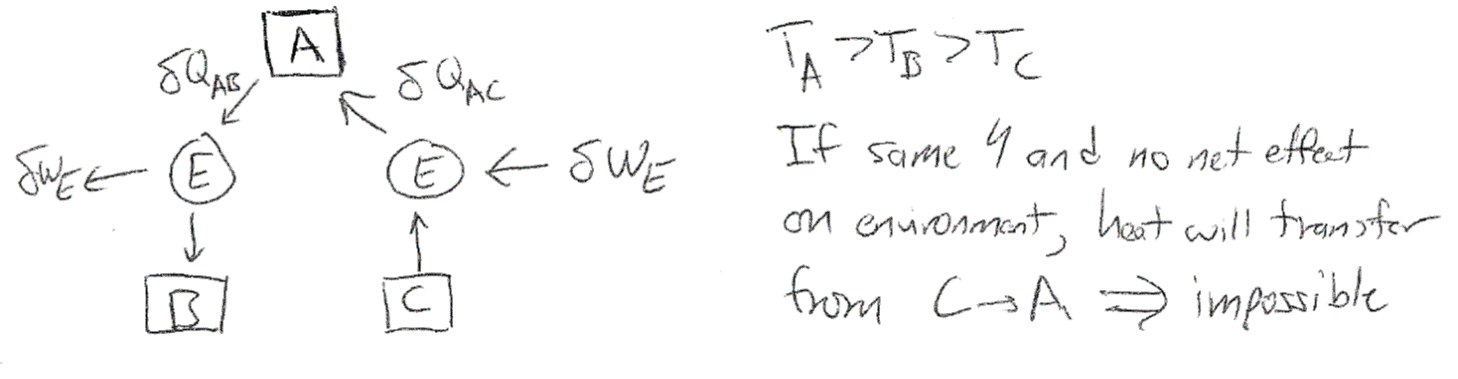 A
δQ_AB
δQ_AC
δW_E
E
E
δW_E
B
C
T_A > T_B > T_C
If same η and no net effect
on environment, heat will transfer
from C → A ⇒ impossible